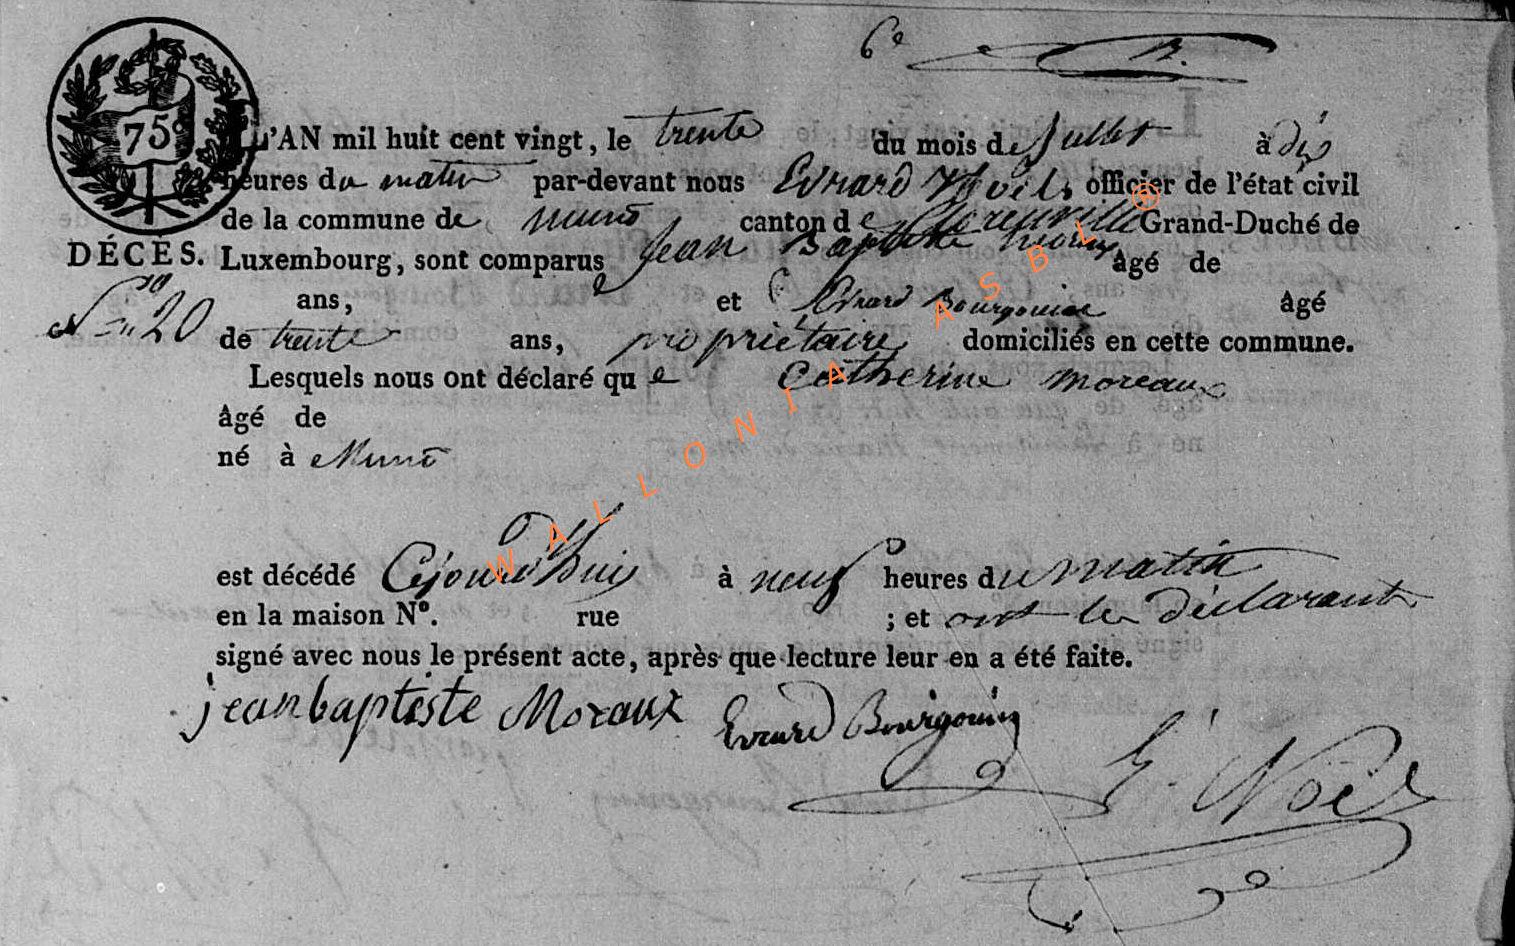 6e
75c
L'AN mil huit cent vingt, le trente du mois de Jullet à dix
heures du matin par-devant nous Evrard Noël officier de l'état civil
de la commune de muno canton de florenville Grand-Duché de
DÉCÈS. Luxembourg, sont comparus Jean Baptiste moraux âgé de
ans, et Evrard Bourgouin âgé
No 20
de trente ans, propriétaire domiciliés en cette commune.
Lesquels nous ont déclaré que Catherine moreaux
âgé de
né à Muno
est décédé Cejourd'hui à neuf heures du matin
en la maison No. rue ; et ont les déclarants
signé avec nous le présent acte, après que lecture leur en a été faite.
jean baptiste Moraux Evrard Bourgouin
E. Noël
WALLONIA ASBL ®